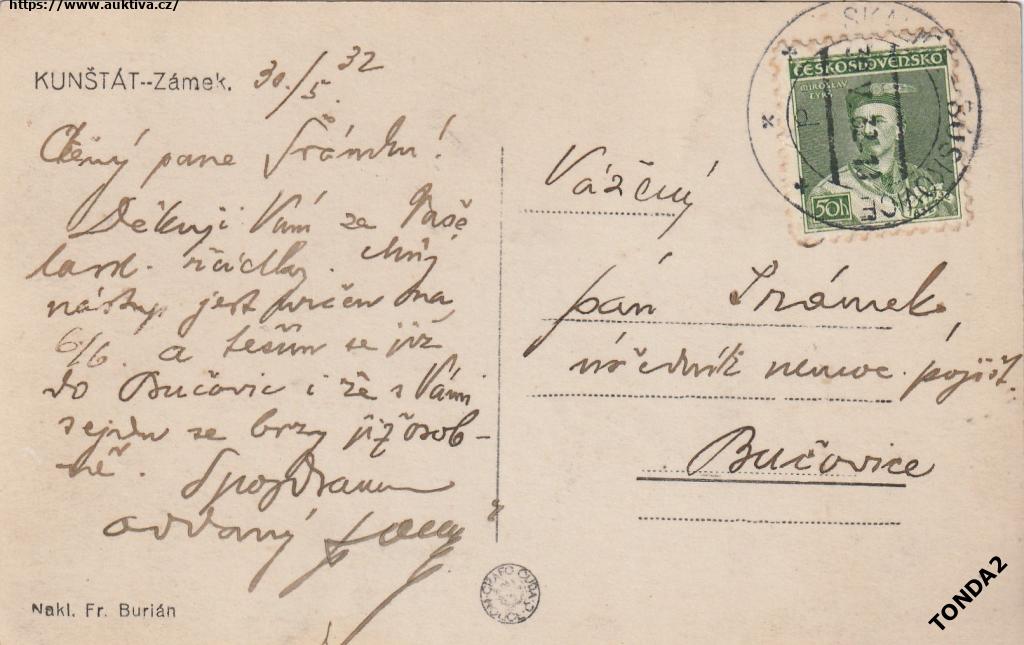 https://www.auktiva.cz/
KUNŠTÁT--Zámek.
30./5. 32
Ctěný pane Šrámku!
Děkuji Vám za Vaše
lask. řádky. Můj
nástup jest určen na
6/6. a těším se již
do Bučovic i že s Vámi
sejdu se brzy již osob-
ně.
S pozdravem
oddaný
Nakl. Fr. Burián
ČESKOSLOVENSKO
MIROSLAV
TYRŠ
50h
Vážený
pán Šrámek
úředník nemoc. pojišť.
Bučovice
GRAFO ČUDA
TONDA2